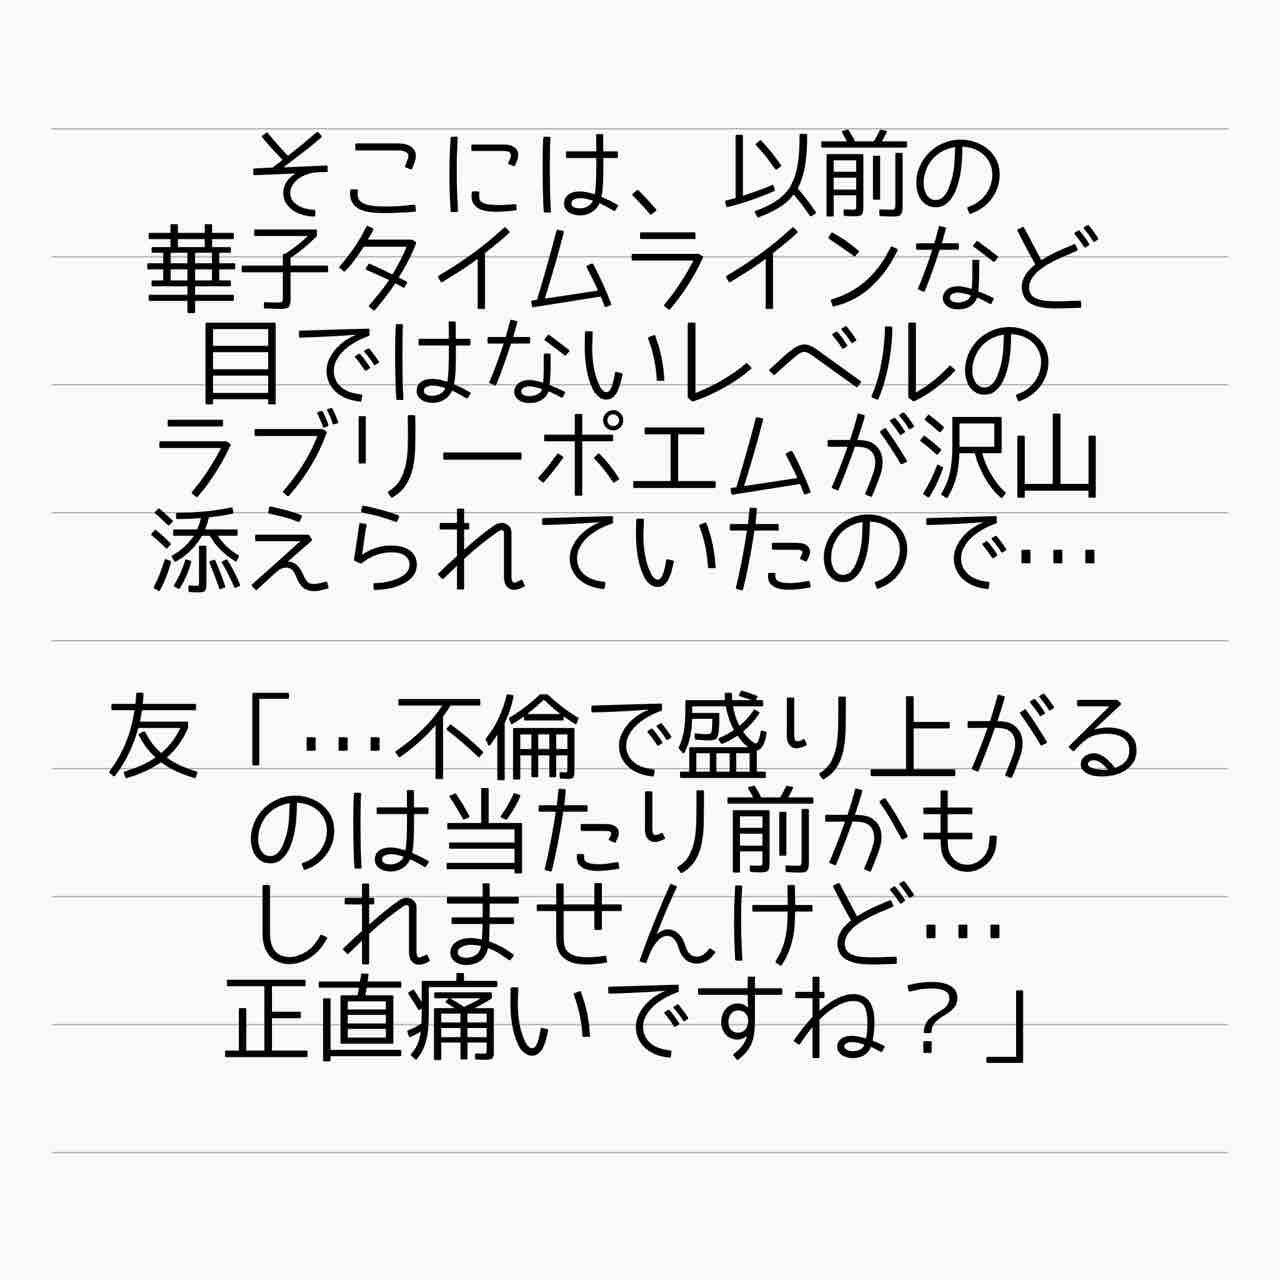 そこには、以前の
華子タイムラインなど
目ではないレベルの
ラブリーポエムが沢山
添えられていたので…
友「…不倫で盛り上がる
のは当たり前かも
しれませんけど…
正直痛いですね？」